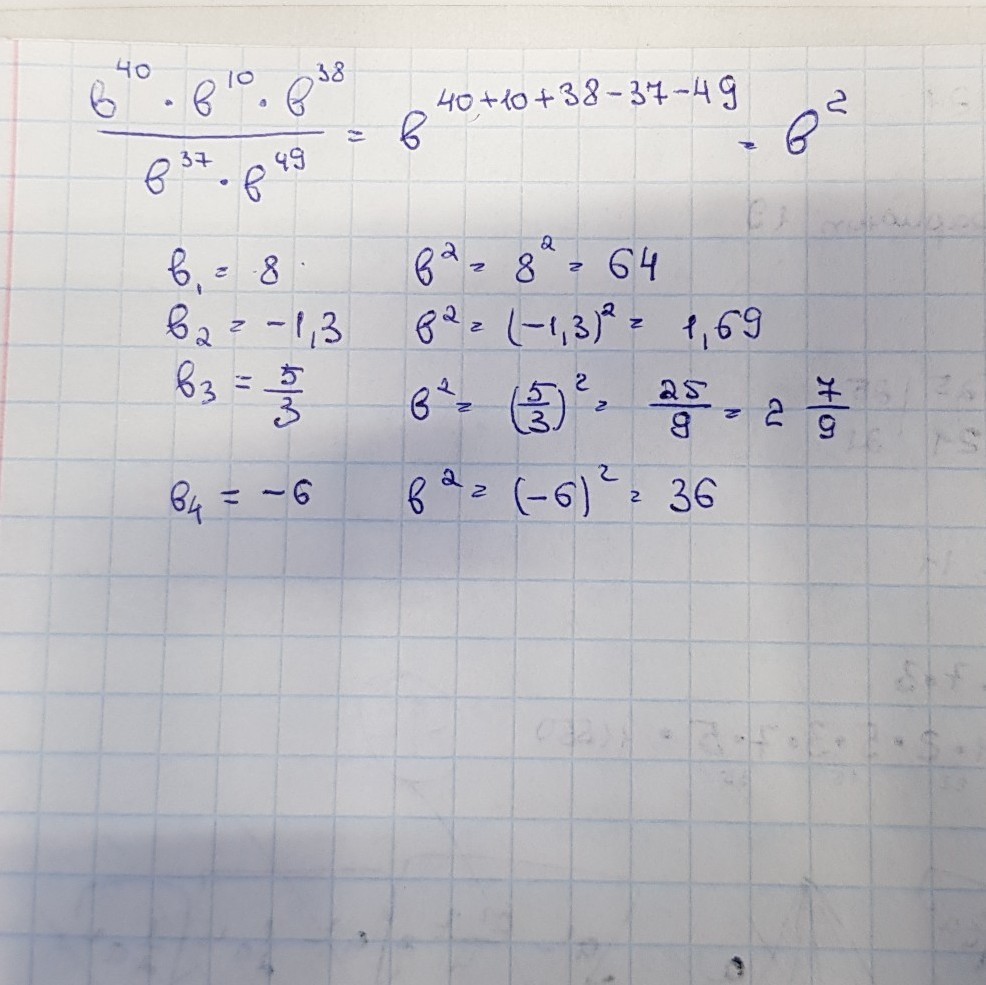 в⁴⁰ · в¹⁰ · в³⁸ / в³⁷ · в⁴⁹ = в⁴⁰⁺¹⁰⁺³⁸⁻³⁷⁻⁴⁹ = в²
в₁ = 8 в² = 8² = 64
в₂ = -1,3 в² = (-1,3)² = 1,69
в₃ = 5/3 в² = (5/3)² = 25/9 = 2 7/9
в₄ = -6 в² = (-6)² = 36